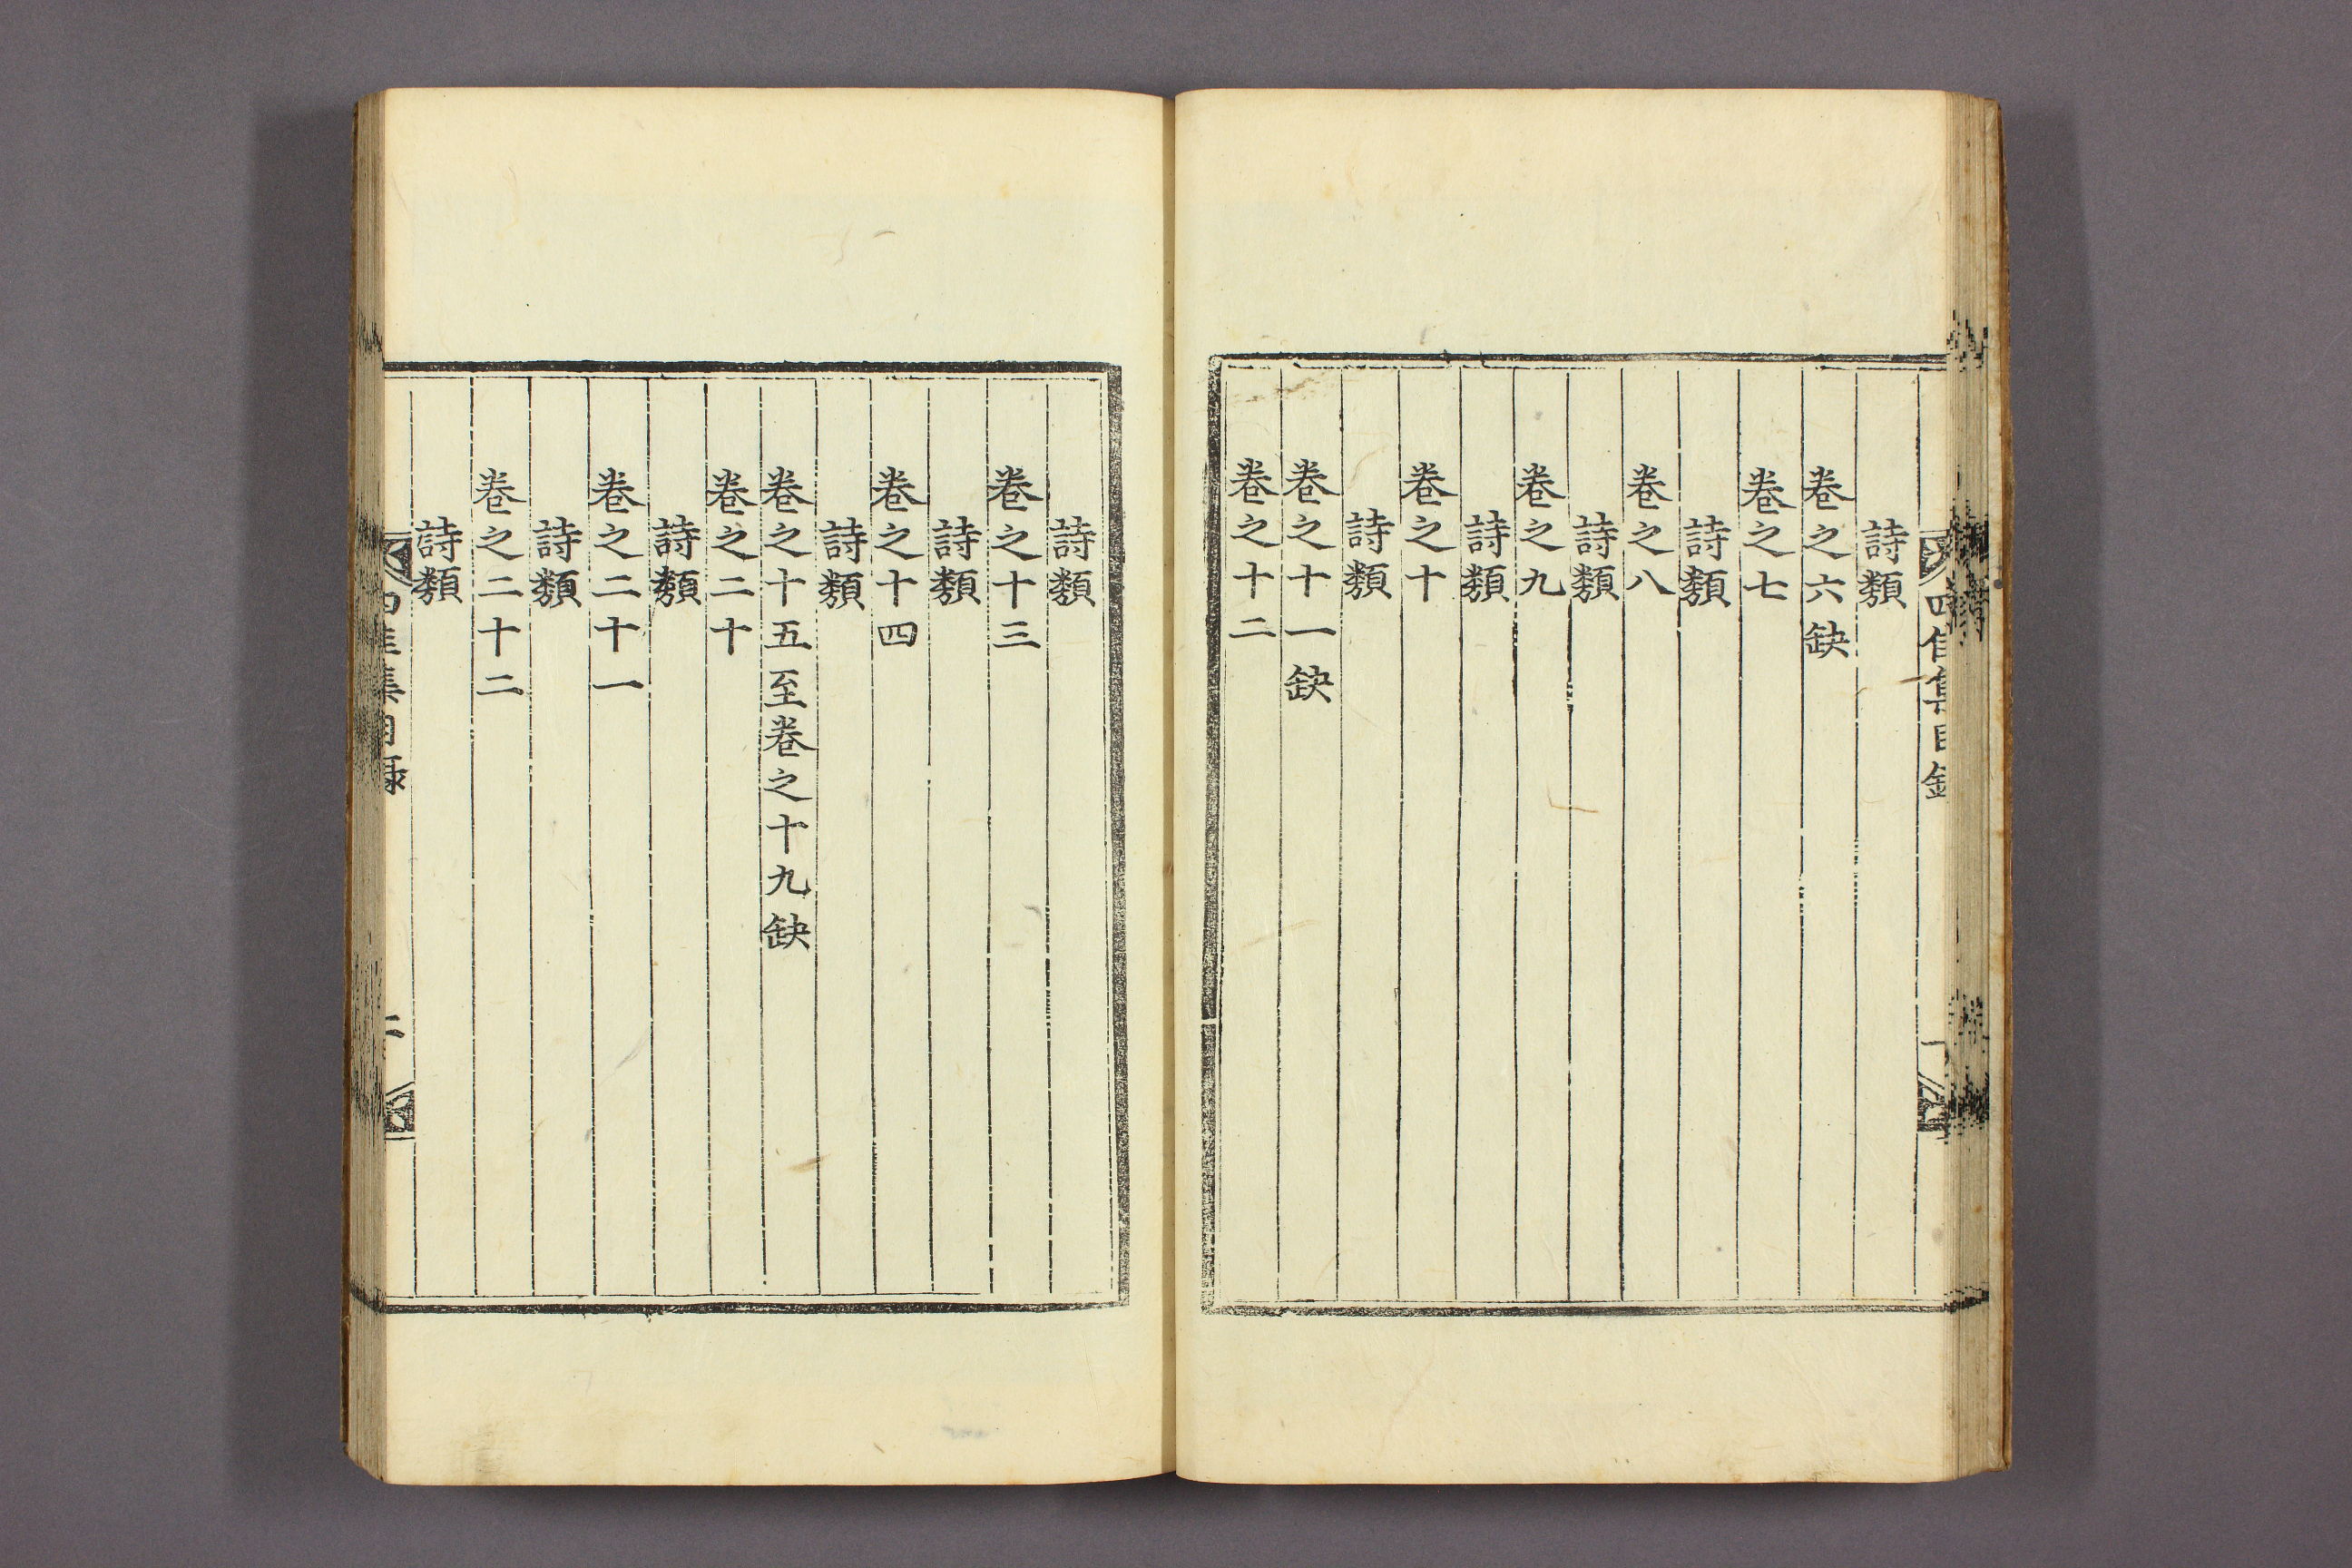 四佳集目錄
詩類
卷之六缺
卷之七
詩類
卷之八
詩類
卷之九
詩類
卷之十
詩類
卷之十一缺
卷之十二
詩類
卷之十三
詩類
卷之十四
詩類
卷之十五至卷之十九缺
卷之二十
詩類
卷之二十一
詩類
卷之二十二
詩類
四佳集目錄
二